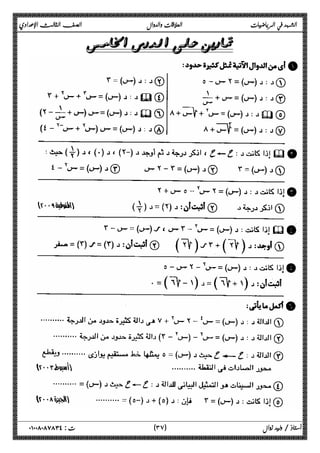 الشهد في الرياضيات العلاقات والدوال الصف الثالث الإعدادي
تمارين على الدرس الخامس
١ أى من الدوال الآتية تمثل كثيرة حدود :
١ د : د (س) = ٢ س - ٥ ٢ د : د (س) = ٣
٣ د : د (س) = س + ١/س ٤ د : د (س) = س٣ + س٢ + ٣
٥ د : د (س) = س٢ + √س + ٨ ٦ د : د (س) = س (س + ١/س - ٢)
٧ د : د (س) = √س + ٨ ٨ د : د (س) = س٣ + س٢ - ٤)
٢ إذا كانت د : ح ← ح ، اذكر درجة د ثم أوجد د (-٢) ، د (٠) ، د (١/٢) حيث :
١ د (س) = ٣ ٢ د (س) = ٣ - ٢ س ٣ د (س) = س٢ - ٤
٣ إذا كانت د : د (س) = ٢ س٢ - ٥ س + ٢
١ اذكر درجة د ٢ أثبت أن : د (٢) = د (١/٢) (المنوفية ٢٠٠٩)
٤ إذا كانت : د (س) = س٢ - ٣ س ، ر (س) = س - ٣
١ أوجد : د (√٢) + ٣ ر (√٢) ٢ أثبت أن : د (٣) = ر (٣) = صفر
٥ إذا كانت د : د (س) = س٢ - ٢ س - ٥
أثبت أن : د (١ + √٦) = د (١ - √٦) = ٠
٦ أكمل ما يأتى :
١ الدالة د : د (س) = س٤ - ٢ س٢ + ٧ هى دالة كثيرة حدود من الدرجة ..........
٢ الدالة د : د (س) = س٢ - (س٢ - ٣) دالة كثيرة حدود من الدرجة ..........
٣ الدالة د : ح ← ح حيث د (س) = ٥ يمثلها خط مستقيم يوازى .......... ويقطع
محور الصادات فى النقطة .......... (أسيوط ٢٠٠٣)
٤ محور السينات هو التمثيل البيانى للدالة د : ح ← ح حيث د (س) = ..........
٥ إذا كانت : د (س) = ٣ فإن : د (٥) + د (-٥) = .......... (الجيزة ٢٠٠٨)
(٣٧)